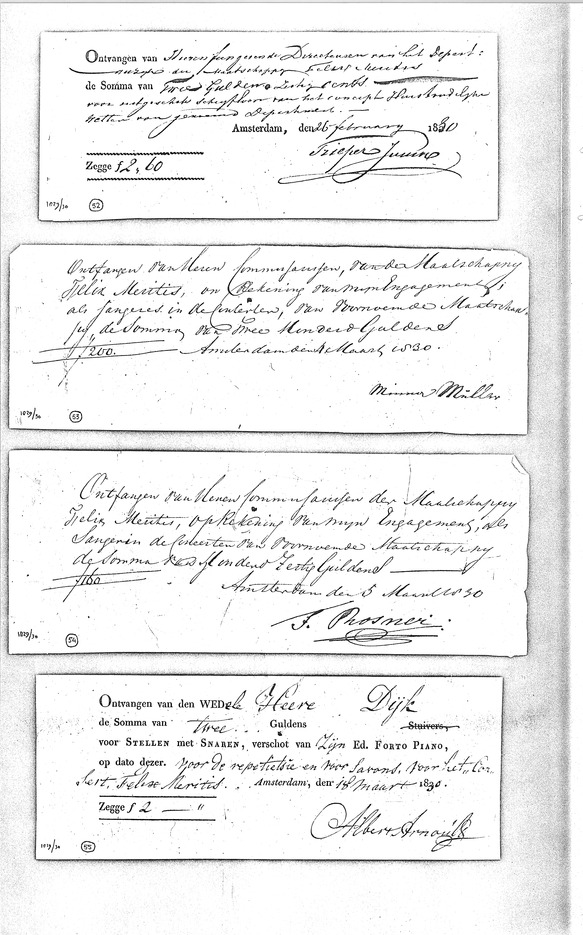 Ontvangen van Heeren fungeerende Directeuren van het Depart:
der Maatschappy Felix Meritis
de Somma van Twee Guldens Zestig Cents
voor van het concept Huishoudelyke
Wetten van gemeend Departement.
Amsterdam, den 26 february 1830
Zegge f 2,60
Trieper Junior
1829/30
52
Ontfangen van Heren Commissarissen, van de Maatschappij
Felix Meritis, on Rekening van mijn Engagement,
als Sangeres in de Concerten, van voornoemde Maatschap
pij, de Somma van Twee Honderd Guldens
f 200. Amsterdam den 4 Maart 1830.
Müller
1829/30
53
Ontfangen van Heren Commissarissen der Maatschappij
Felix Meritis, op Rekening van mijn Engagement, als
Sanger in de Concerten van voornoemde Maatschappij
de Somma van Honderd Zestig Guldens
f 160 Amsterdam den 5 Maart 1830
F. Rosner.
1829/30
54
Ontvangen van den WEDele Heere Dijk
de Somma van twee Guldens Stuivers,
voor STELLEN met SNAREN, verschot van Zijn Ed. FORTO PIANO,
op dato dezer. voor de repetietsie en voor Savons. voor het Con
sert. Felix Meritis. Amsterdam, den 18 maart 1830.
Zegge f 2 — "
Albers Arnoulds
1829/30
55